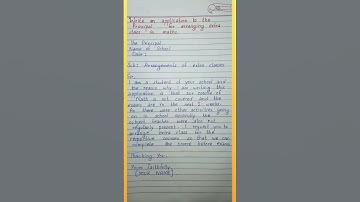 Write an application to the
Principal for arranging extra
class in maths.
The Principal
Name of School
Date:
Sub: Arrangements of extra classes
Sir,
I am a student of your school and
the reason why I am writing this
application is that our course of
Math is not covered and the
exams are in the next 2 weeks.
As there were other activities going
on in school secondly the
school teacher were also not
regularly present. I request you to
arrange extra class for the
respective concern so that we can
complete the course before exams.
Thanking You.
Yours faithfully
[YOUR NAME]